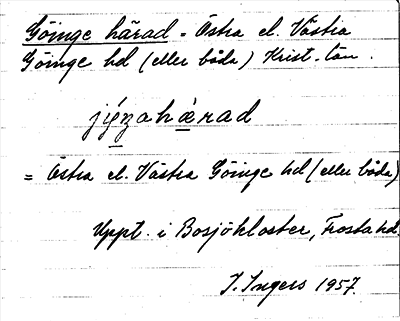 Göinge härad = Östra el. Västra
Göinge hd (eller båda) Krist. län.
jýnzahàrad
= Östra el. Västra Göinge hd (eller båda)
Uppt. i Bosjökloster, Frosta hd
J. Ingers 1957.